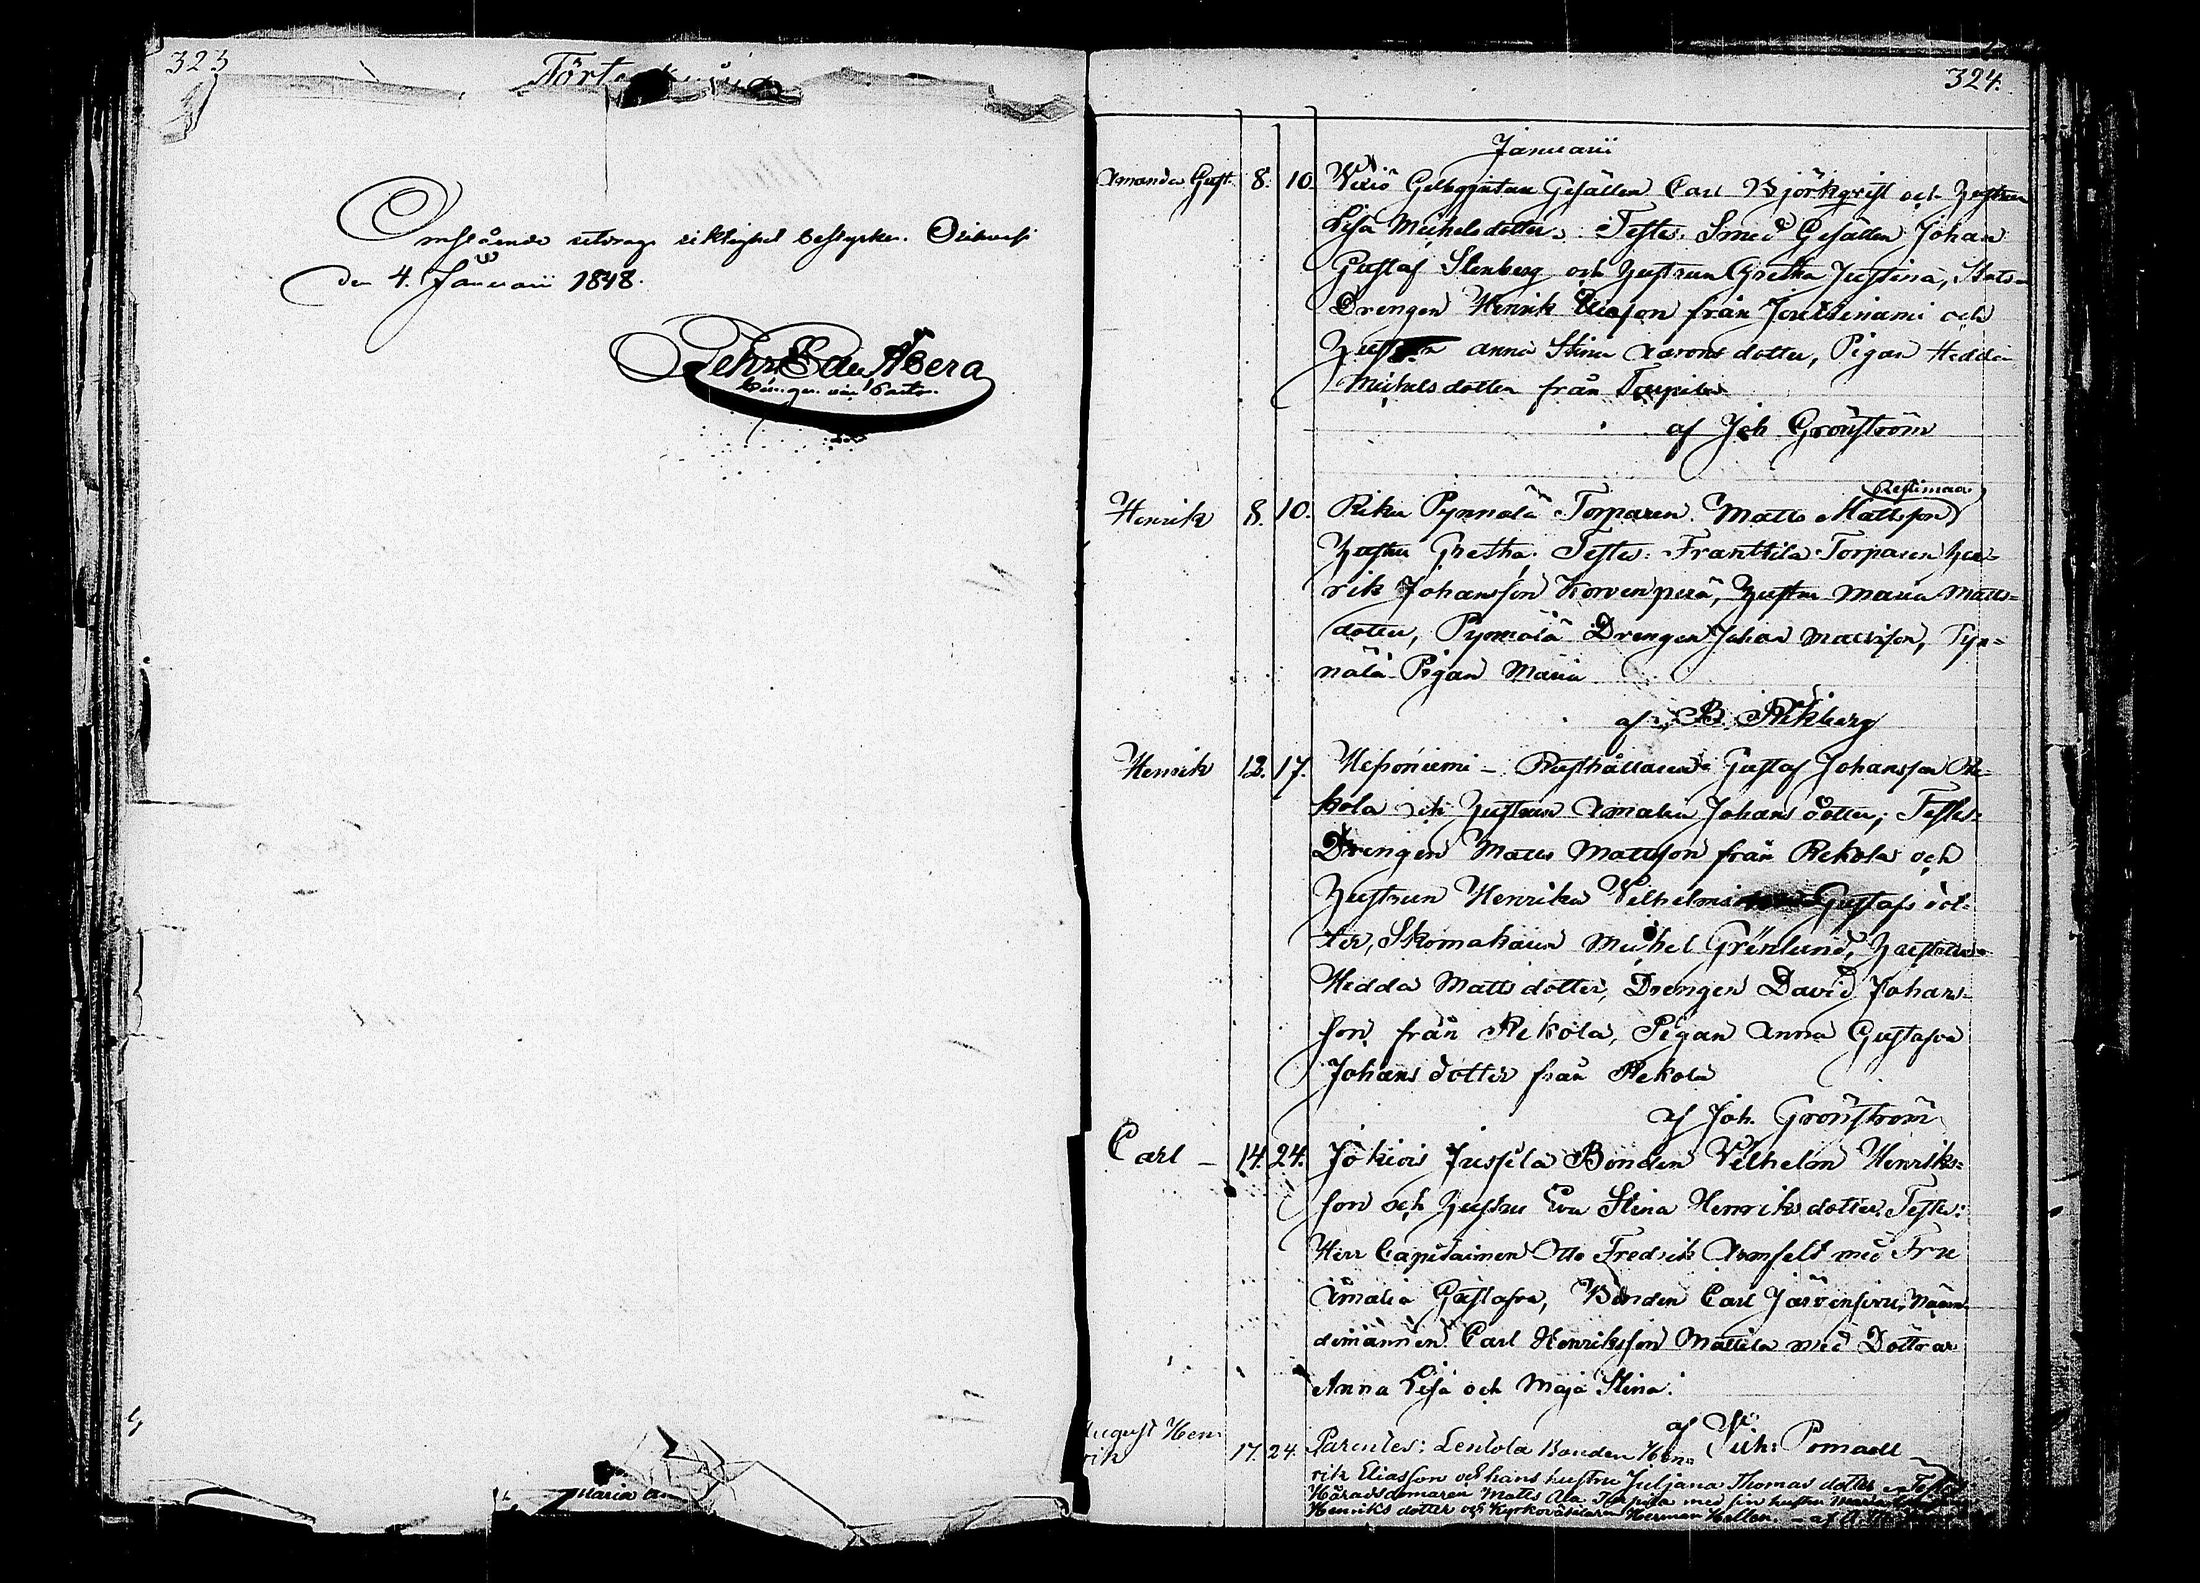 323
Omstående utdrags riktighet bestyrker.
den 4. Januarii 1848.
324.
Januarii
Amanda Gust. 8. 10. Gesällen Carl Björkqvist och hustrun
Lisa Michelsdotter. Testes. Smed Gesällen Johan
Gustaf Stenberg och hustrun Gretha Justina, Stats-
Drengen Henrik från och
Hustrun Anna Stina Aarons dotter, Pigan Hedda
Michelsdotter från
af Joh Grönström
Henrik 8. 10. Pynnälä Torparen Matts Mattsson
Hustru Gretha. Testes: Franttila Torparen Hen-
rik Johansson Korvenperä, Hustru Maria Matts-
dotter, Pynnälä Drengen Johan Mattsson, Pyn-
nälä Pigan Maria
af B. Rekberg
Henrik 12. 17. Heponiemi - Rusthållaren Gustaf Johansson Re-
kola och Hustrun Amalia Johans dotter, Testes:
Drengen Matts Mattsson från Rekola och
Hustrun Henrika Vilhelmina Gustafs dot-
ter, Skomakaren Michel Grönlund, Hustrun
Hedda Matts dotter, Drengen David Johans-
son från Rekola, Pigan Anna Gustafva
Johans dotter från Rekola
af Joh. Grönström
Carl - 14. 24. Jokiois Jussila Bonden Vilhelm Henriks-
son och Hustru Eva Stina Henriks dotter. Testes:
Herr Capitainen Otto Fredrik Armfelt med Fru
Amalia Gustafva, Bonden Carl Järvensivu, Nämn-
demannen Carl Henriksson Mattila med Döttrar
Anna Lisa och Maja Stina.
af Vilh: Pomoell
August Hen-
rik 17. 24. Parentes: Lentola Bonden Hen-
rik Eliasson och hans hustru Juljana Thomas dotter - Testes
Häradsdomaren Matts Ala med sin hustru Maria
Henriks dotter och Kyrkoväktaren Herman Hellen. - af